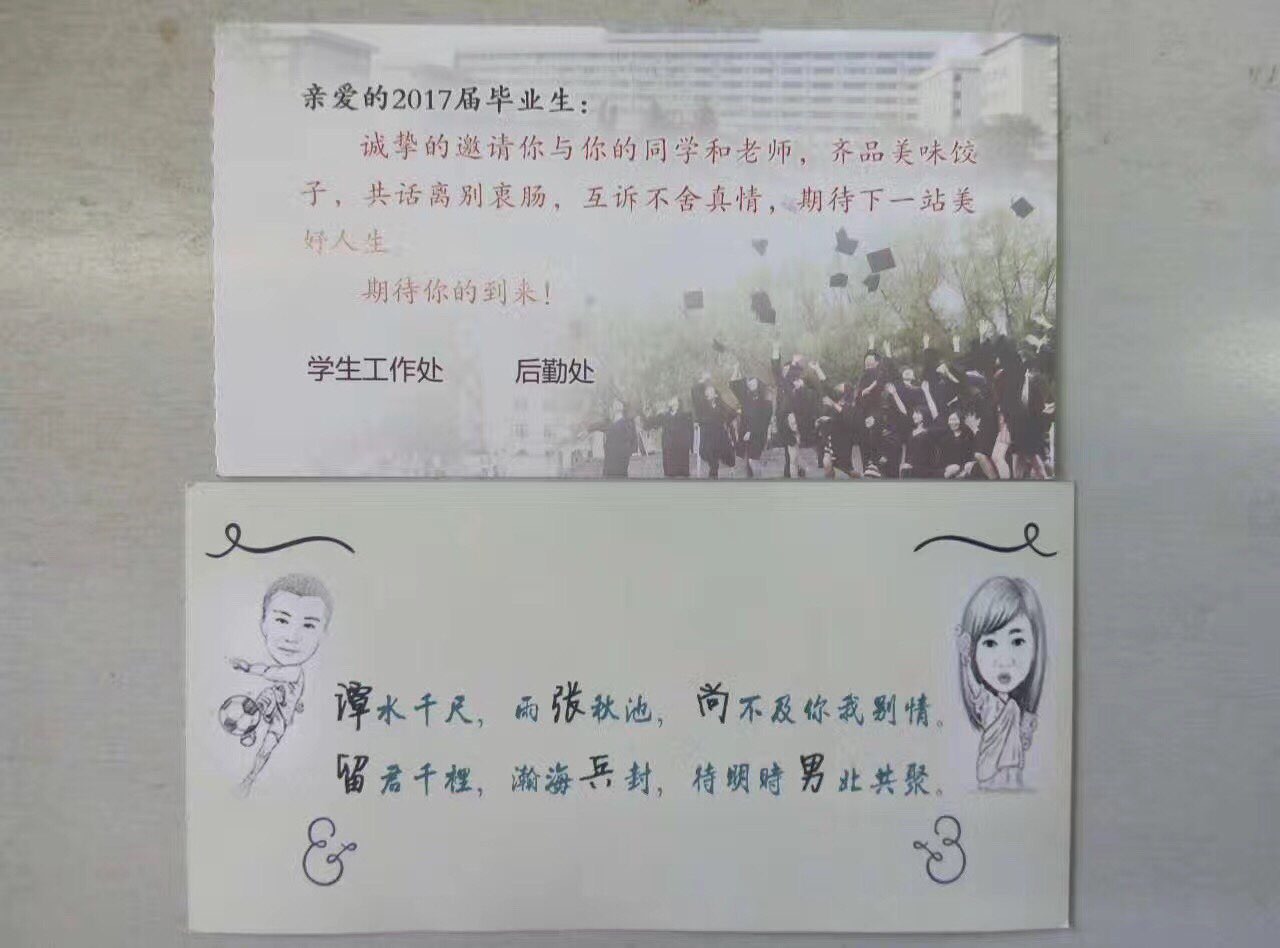 亲爱的2017届毕业生：
诚挚的邀请你与你的同学和老师，齐品美味饺
子，共话离别衷肠，互诉不舍真情，期待下一站美
好人生
期待你的到来！
学生工作处 后勤处
谭水千尺，雨张秋池，尚不及你我别情。
留君千裡，瀚海兵封，待明時男北共聚。